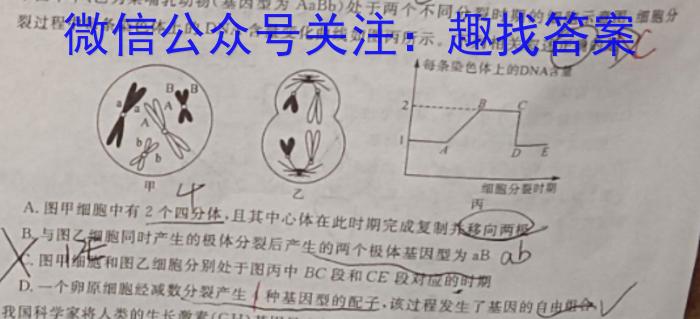 哺乳动物(基因型为 AaBb)处于两个不同分裂时期的
细胞分
裂过程
微信公众号关注：趣找答案
每条染色体上的DNA含量
2
1
A
B
C
D
E
细胞分裂时期
a
a
A
A
B
B
b
b
甲
乙
丙
4
A. 图甲细胞中有 2 个四分体,且其中心体在此时期完成复制并移向两极
B. 与图乙细胞同时产生的极体分裂后产生的两个极体基因型为 aB
ab
C. 图甲细胞和图乙细胞分别处于图丙中 BC 段和 CE 段对应的时期
D. 一个卵原细胞经减数分裂产生 1 种基因型的配子,该过程发生了基因的自由组合
我国科学家将人类的生长激素